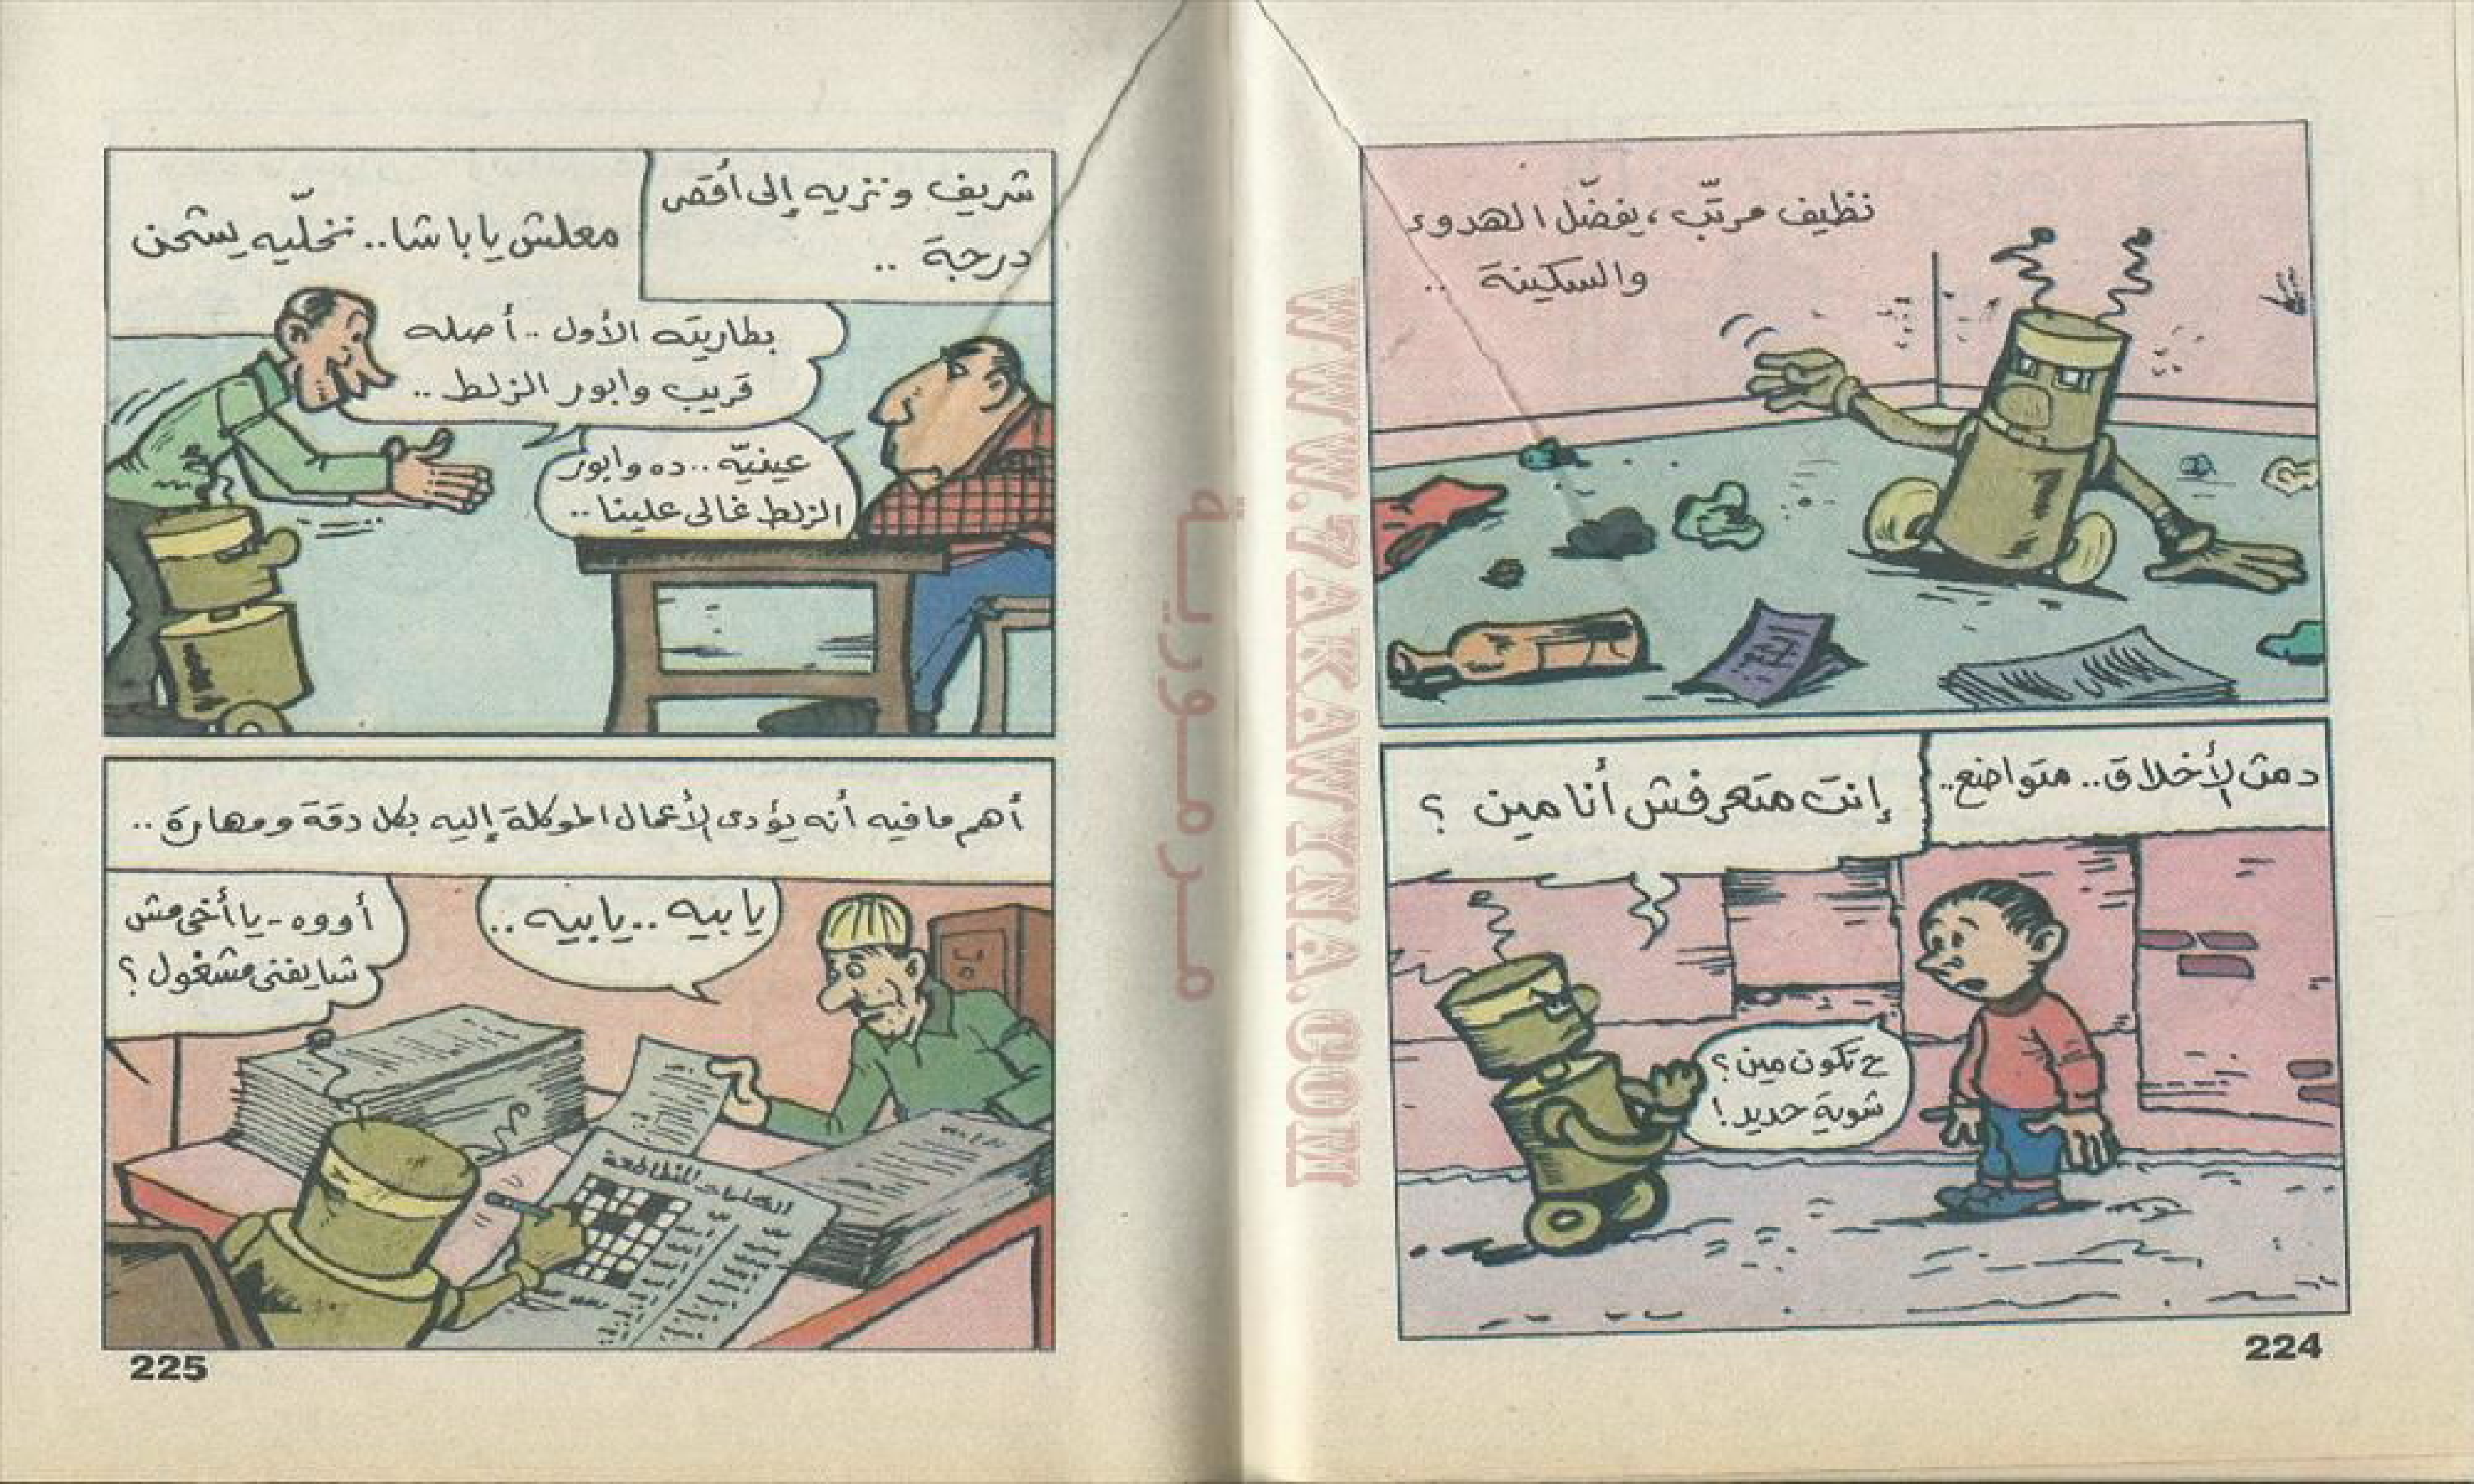 نظيف مرتّب، يفضّل الهدوء
والسكينة ..
دمث الأخلاق.. متواضع..
إنت متعرفش أنا مين ؟
ح تكون مين؟
شوية حديد!
224
شريف ونزيه إلى أقصى
درجة ..
معلش يا باشا.. نخلّيه يشحن
بطاريته الأول .. أصله
قريب وابور الزلط ..
عينيّه .. ده وابور
الزلط غالى علينا ..
أهم ما فيه أنه يؤدى الأعمال الموكلة إليه بكل دقة ومهارة ..
يا بيه .. يا بيه ..
أووه - يا أخى مش
شايفنى مشغول ؟
الكلمات المتقاطعة
225
مرمورية
WWW.7AKAWYNA.COM